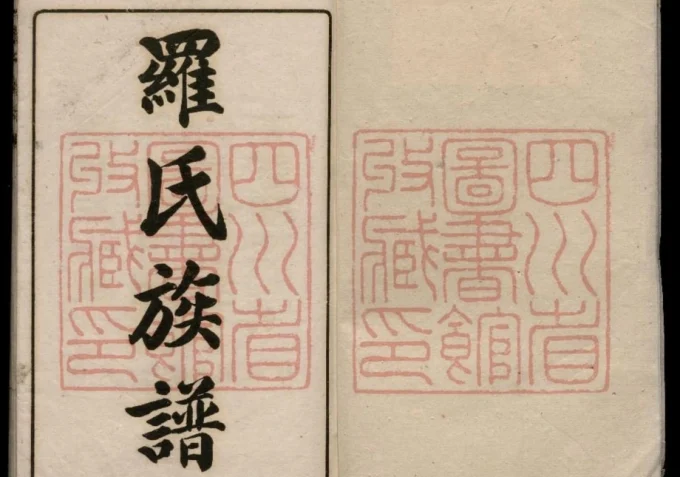 四川省
圖書館
收藏印
羅氏族譜
四川省
圖書館
收藏印